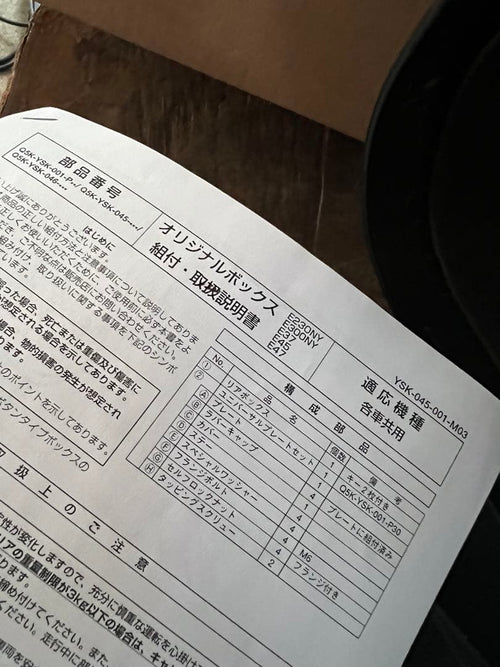 YSK-045-001-M03
部品番号
Q5K-YSK-001-P--/ Q5K-YSK-045----/
Q5K-YSK-046----
オリジナルボックス
組付・取扱説明書
E230NY
E300NY
E37
E45
E47
適応機種
各車共用
はじめに
上げ誠にありがとうございます。
商品の正しい組付方法と注意事項について説明してありま
正しくお使いいただくために、ご使用前に必ず本書をよ
ださき、ご不明な点は販売店にお問い合わせください。
組み付け、取り扱いに関する事項を下記のシンボ
誤った場合、死亡または重傷及び傷害に
が想定される場合を示してあります。
場合、物的損害の発生が想定され
ます。
のポイントを示してあります。
ボタンタイプボックスの
構成部品
No. 品名 個数 備考
① リアボックス 1 キー2枚付き
② ユニバーサルプレートセット 1 Q5K-YSK-001-P30
Ⓐ プレート 1 プレートに組付済み
Ⓑ ラバーキャップ 4
Ⓒ カバー 1
Ⓓ ステー
Ⓔ スペシャルワッシャー 4
Ⓕ フランジボルト 4
Ⓖ セルフロックナット 4 M6
Ⓗ タッピングスクリュー 2 フランジ付き
取扱上のご注意
定性が変化しますので、充分に慎重な運転を心掛け
リアの重量制限が3kg以下の場合は、キャ
ります。
締め付けてください。また、
ください。走行中に